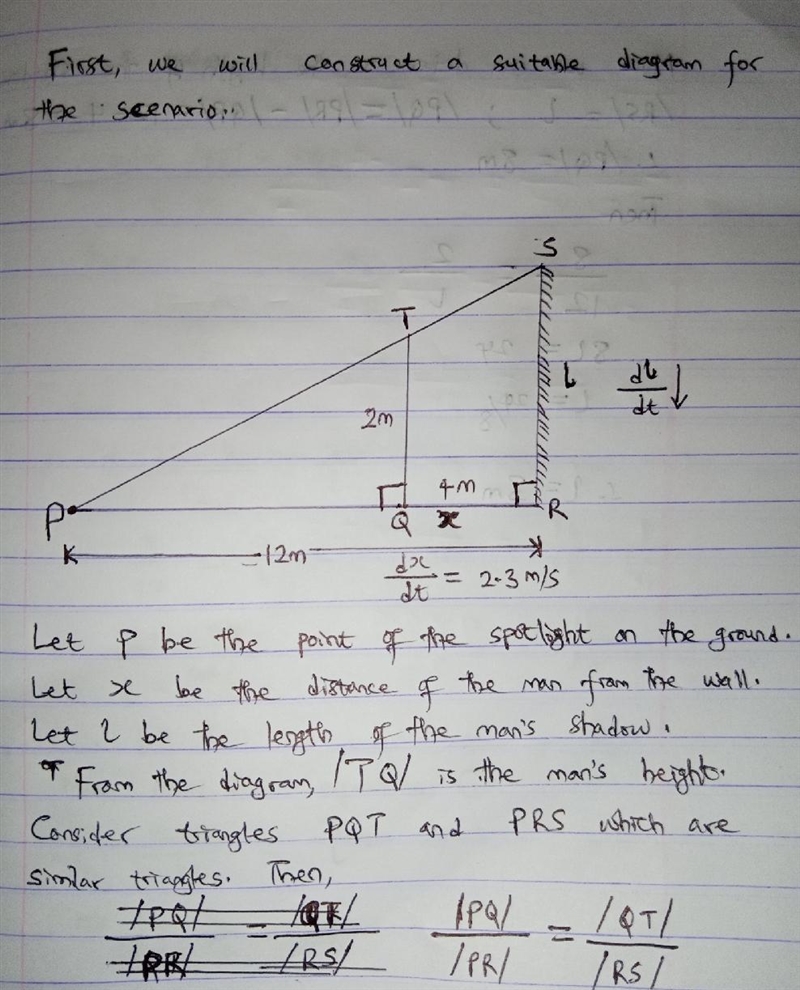 First, we will construct a suitable diagram for
the scenario.
S
T
l
dl/dt ↓
2m
4m
P
Q
x
R
12m
dx/dt = 2.3 m/s
Let P be the point of the spotlight on the ground.
Let x be the distance of the man from the wall.
Let l be the length of the man's shadow.
From the diagram, /TQ/ is the man's height.
Consider triangles PQT and PRS which are
similar triangles. Then,
/PQ/ / /PR/ = /QT/ / /RS/